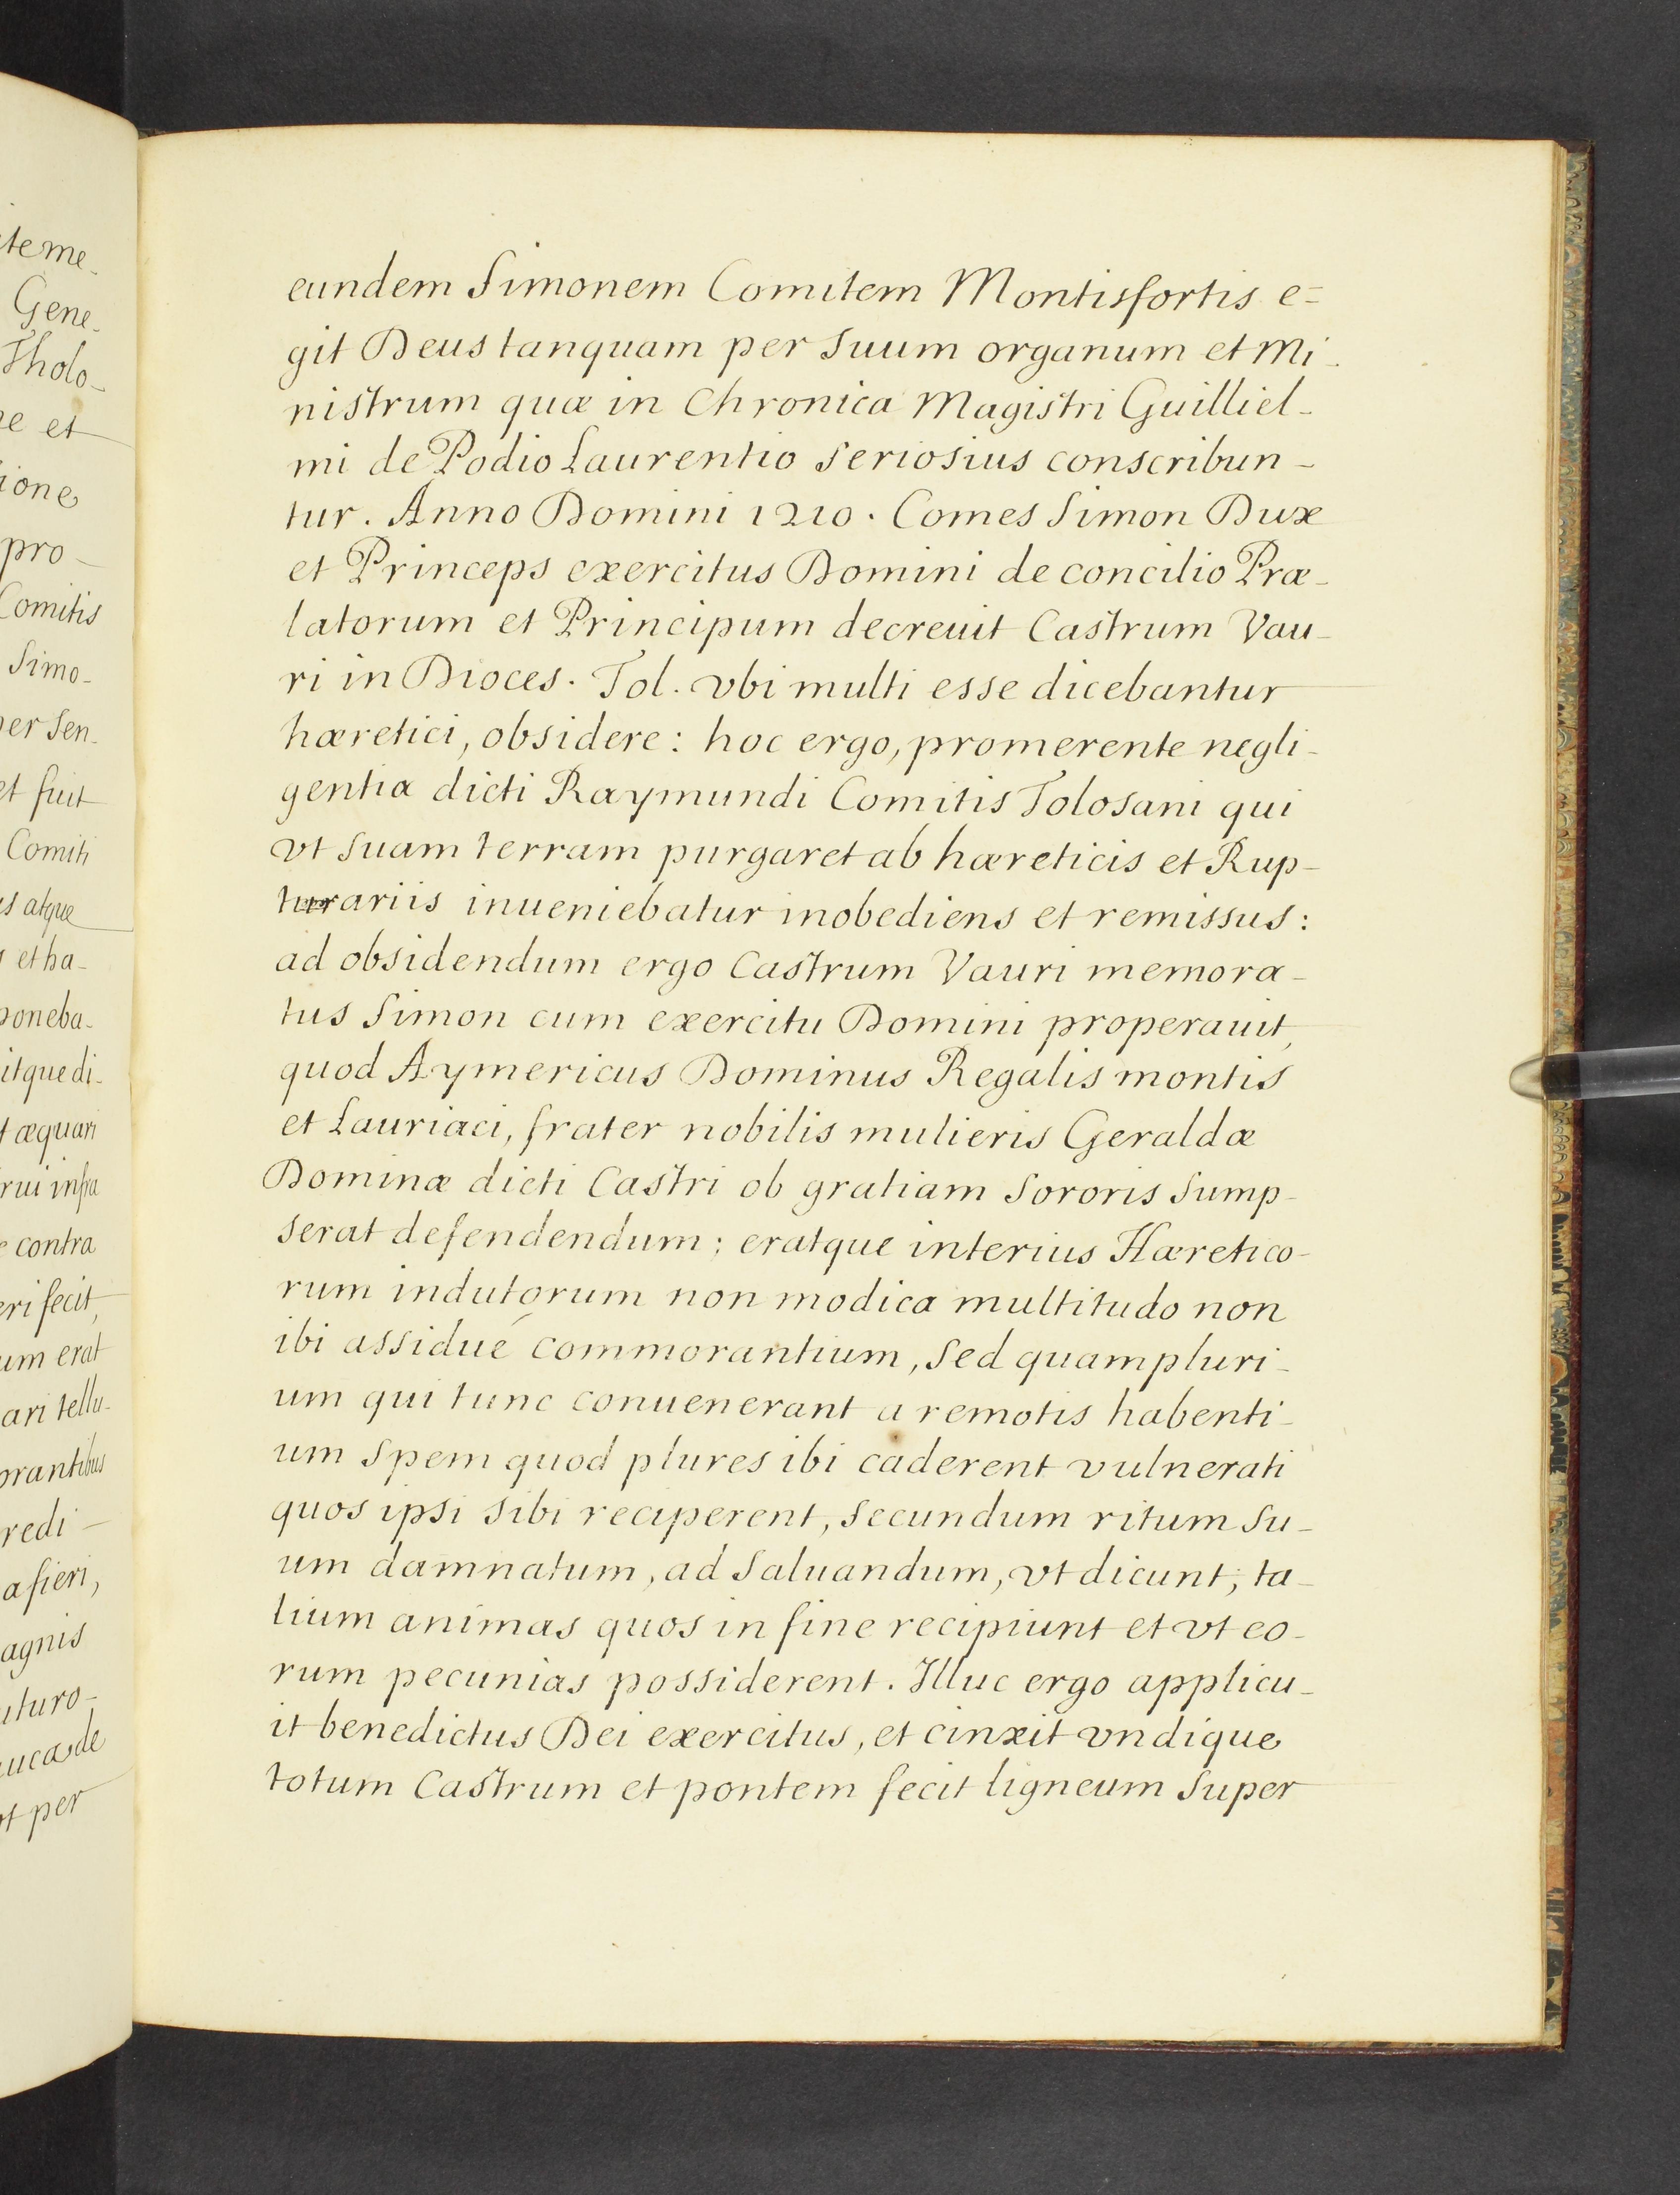 eundem Simonem Comitem Montisfortis e=
git Deus tanquam per suum organum et Mi-
nistrum quæ in Chronica Magistri Guilliel-
mi de Podio Laurentio seriosius conscribun-
tur. Anno Domini 1210. Comes Simon Dux
et Princeps exercitus Domini de concilio Præ-
latorum et Principum decreuit Castrum Vau-
ri in Dioces. Tol. vbi multi esse dicebantur
hæretici, obsidere: hoc ergo, promerente negli-
gentia dicti Raymundi Comitis Tolosani qui
vt suam terram purgaret ab hæreticis et Rup-
turariis inueniebatur inobediens et remissus:
ad obsidendum ergo Castrum Vauri memora-
tus Simon cum exercitu Domini properauit,
quod Aymericus Dominus Regalis montis
et Lauriaci, frater nobilis mulieris Geraldæ
Dominæ dicti Castri ob gratiam sororis sump-
serat defendendum; eratque interius Hæretico-
rum indutorum non modica multitudo non
ibi assidué commorantium, sed quampluri-
um qui tunc conuenerant a remotis habenti-
um spem quod plures ibi caderent vulnerati
quos ipsi sibi reciperent, secundum ritum su-
um damnatum, ad saluandum, vt dicunt, ta-
lium animas quos in fine recipiunt et vt eo-
rum pecunias possiderent. Illuc ergo applicu-
it benedictus Dei exercitus, et cinxit vndique
totum Castrum et pontem fecit ligneum super